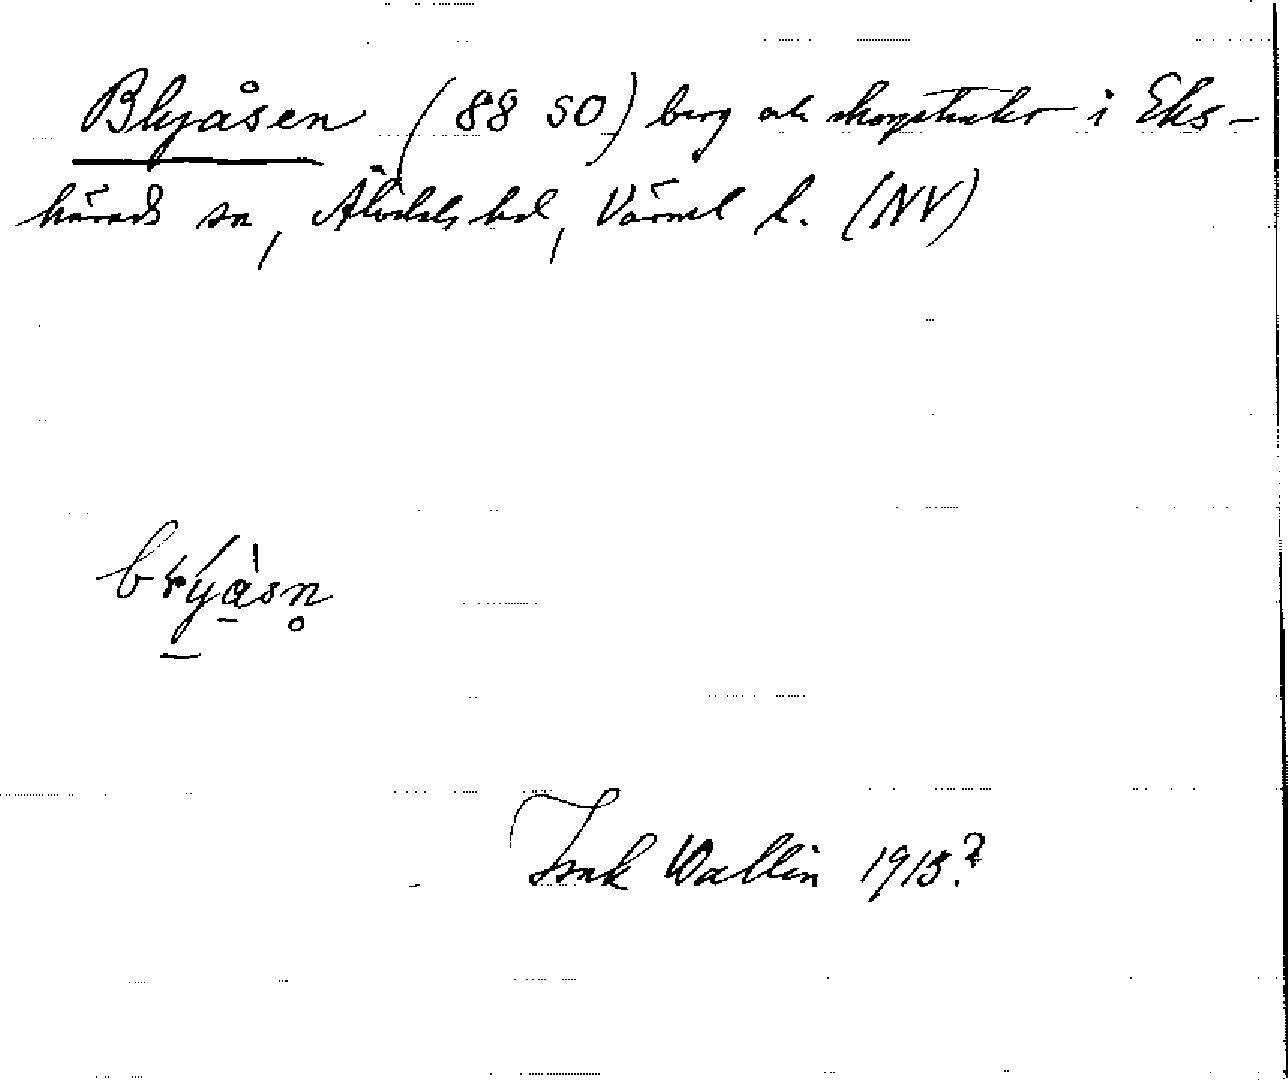 Blyåsen (88 SO) berg och skogstrakt i Eks-
härads sn, Älvdals hd, Värml l. (NV)
Isak Wallin 1915?